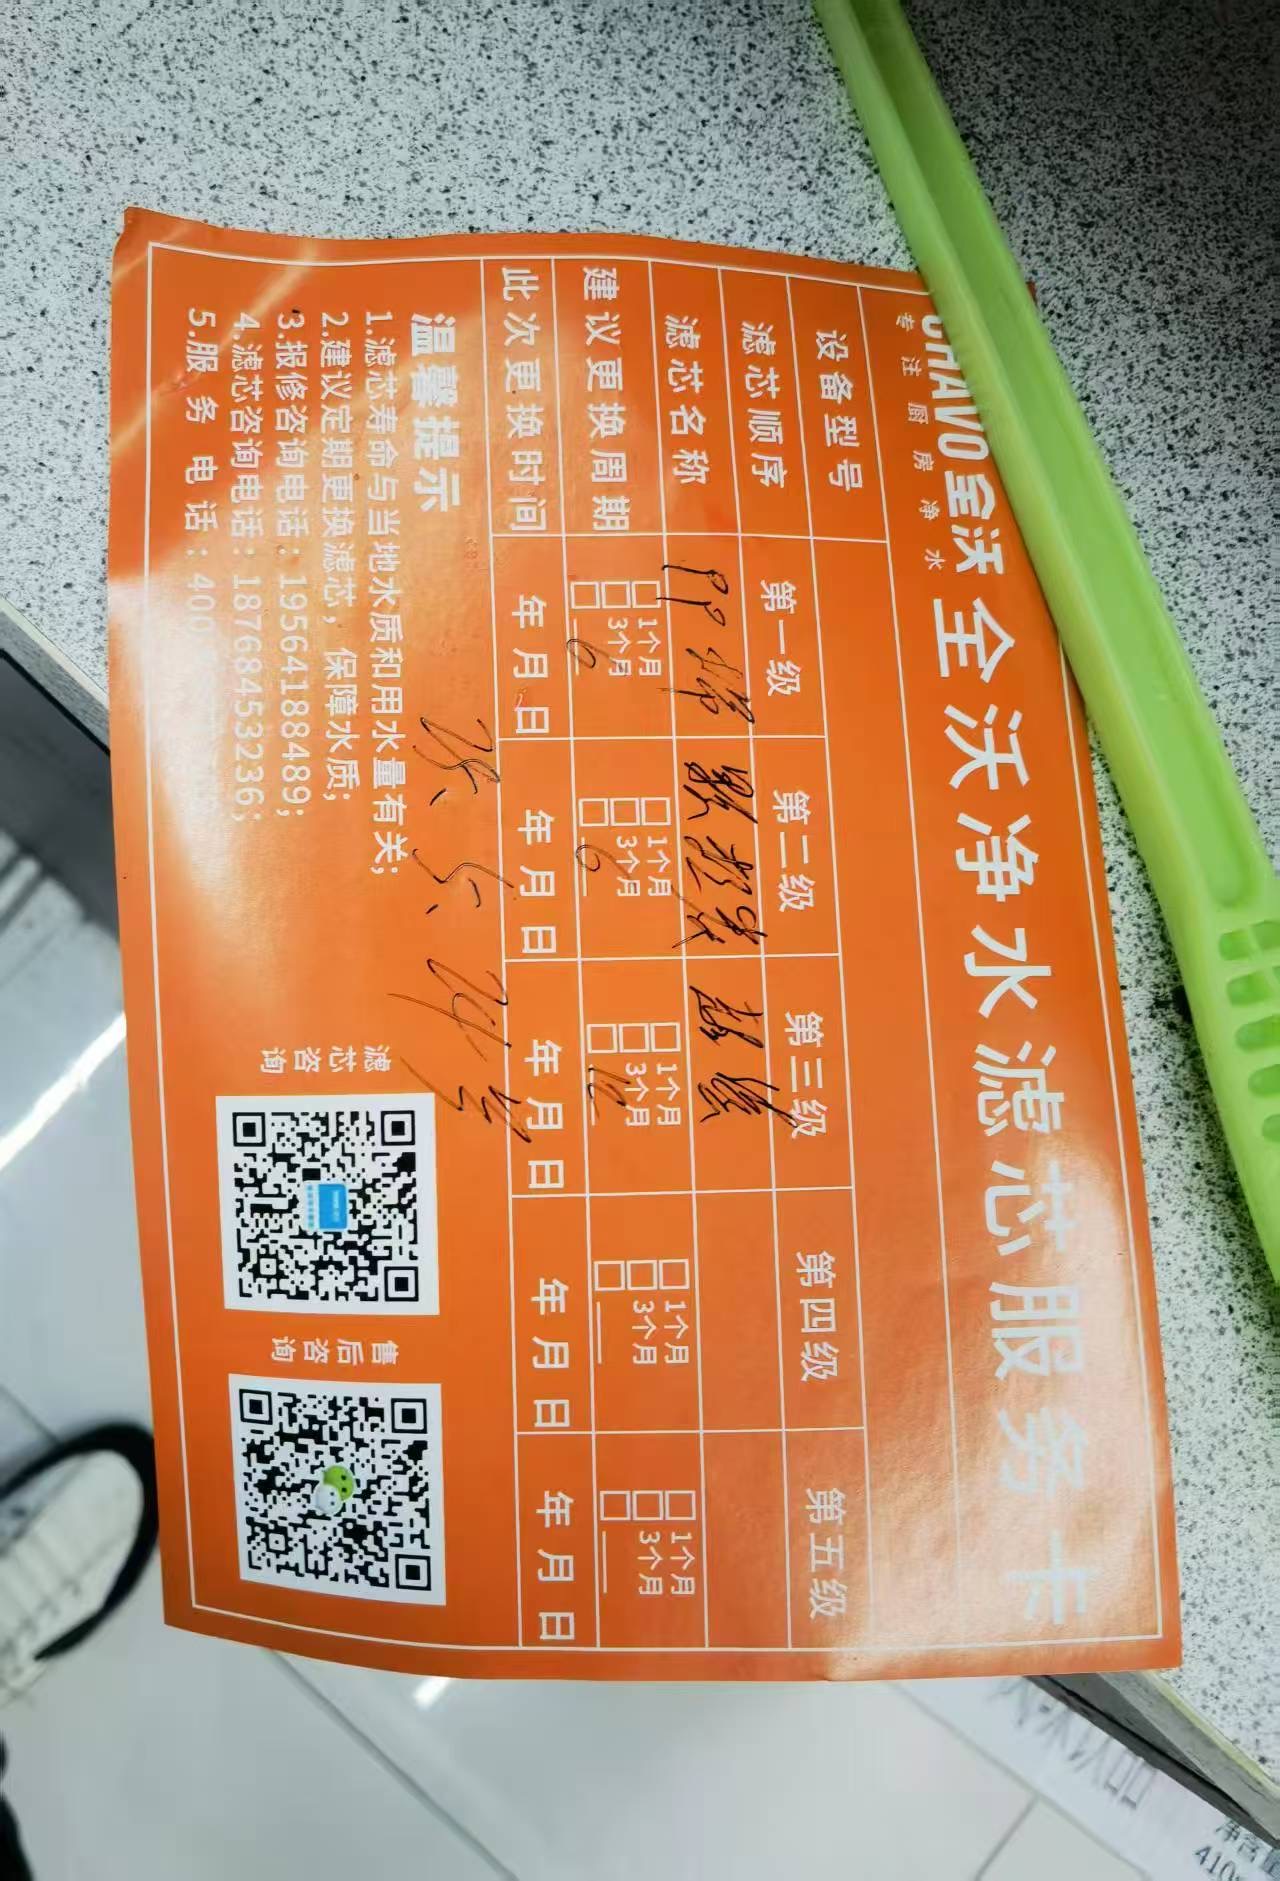 全沃 全沃净水滤芯服务卡
专注厨房净水
设备型号
滤芯顺序 第一级 第二级 第三级 第四级 第五级
滤芯名称 PP棉 颗粒炭 超滤
建议更换周期 □1个月 □3个月 □6 □1个月 □3个月 □6 □1个月 □3个月 □12 □1个月 □3个月 □ □1个月 □3个月 □
此次更换时间 年月日 年月日 年月日 年月日 年月日
温馨提示
1.滤芯寿命与当地水质和用水量有关;
2.建议定期更换滤芯,保障水质;
3.报修咨询电话:19564188489;
4.滤芯咨询电话:18768453236;
5.服务电话:400
滤芯咨询
售后咨询